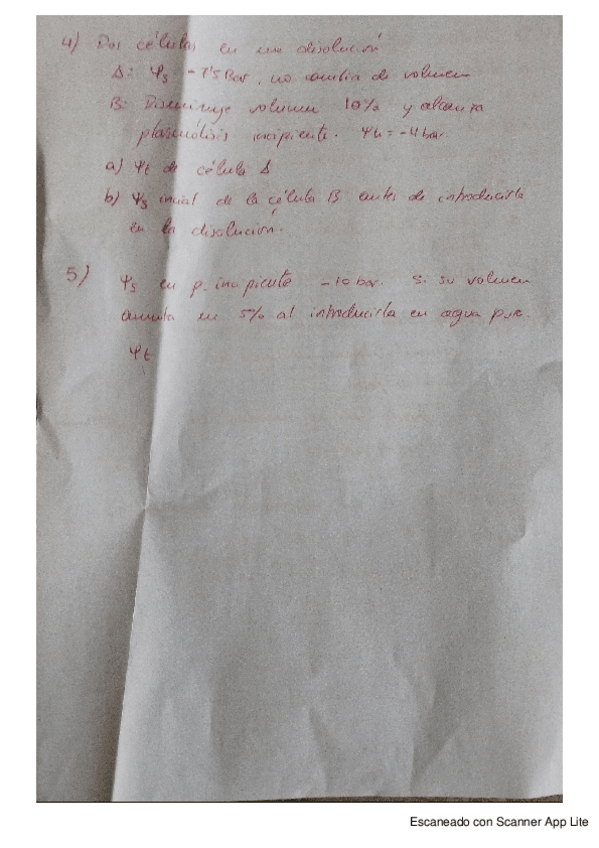 4) Dos células en una disolución
A: Ψs -7'5 Bar, no cambia de volumen
B: Disminuye volumen 10% y alcanza
plasmólisis incipiente. Ψh = -4 bar.
a) Ψt de célula A
b) Ψs inicial de la célula B antes de introducirla
en la disolución.
5) Ψs en p. incipiente -10 bar. Si su volumen
aumenta un 5% al introducirla en agua pura.
Ψt
Escaneado con Scanner App Lite